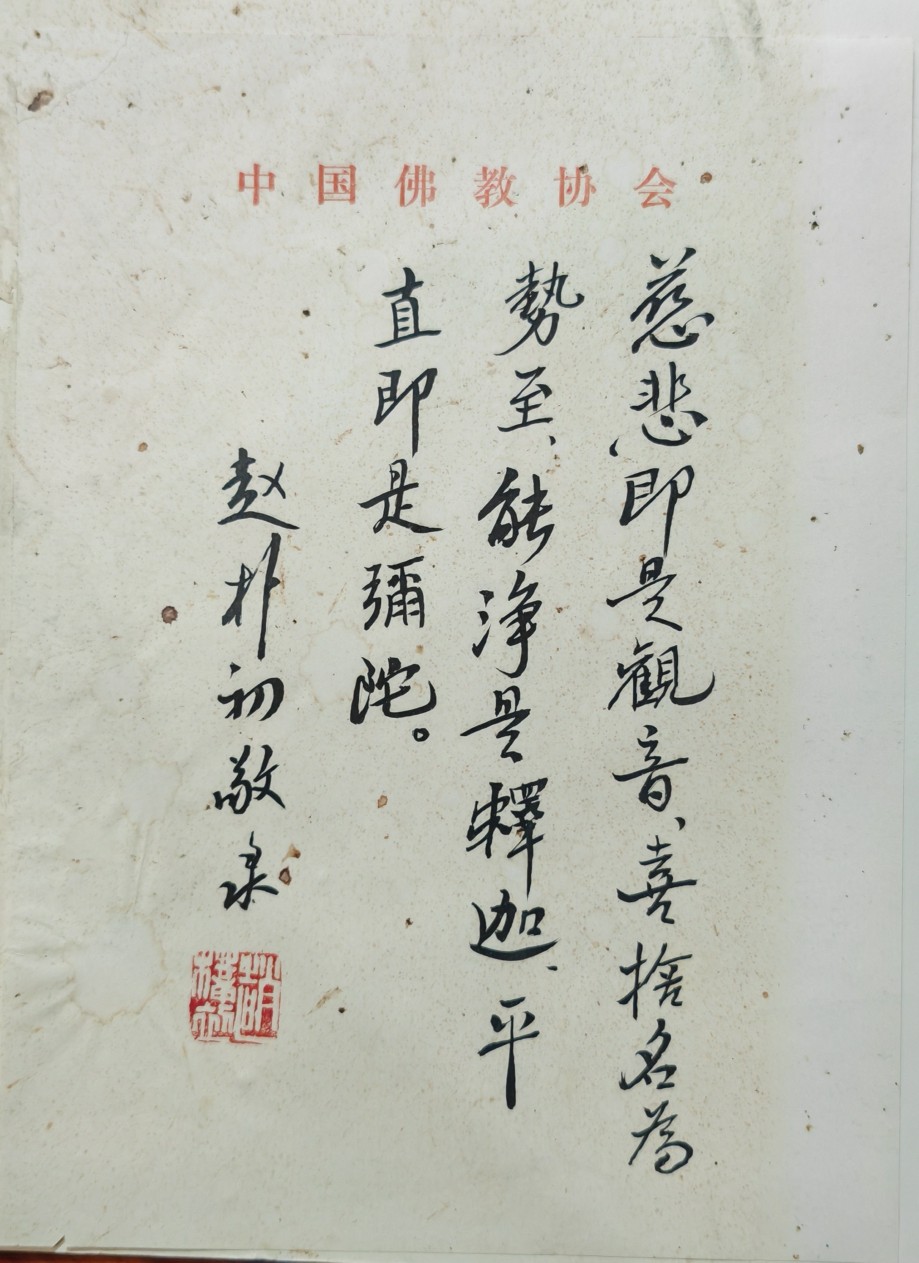 中国佛教协会
慈悲即是觀音、喜捨名為
勢至、能浄是釋迦、平
直即是彌陀。
赵朴初敬录
趙樸初